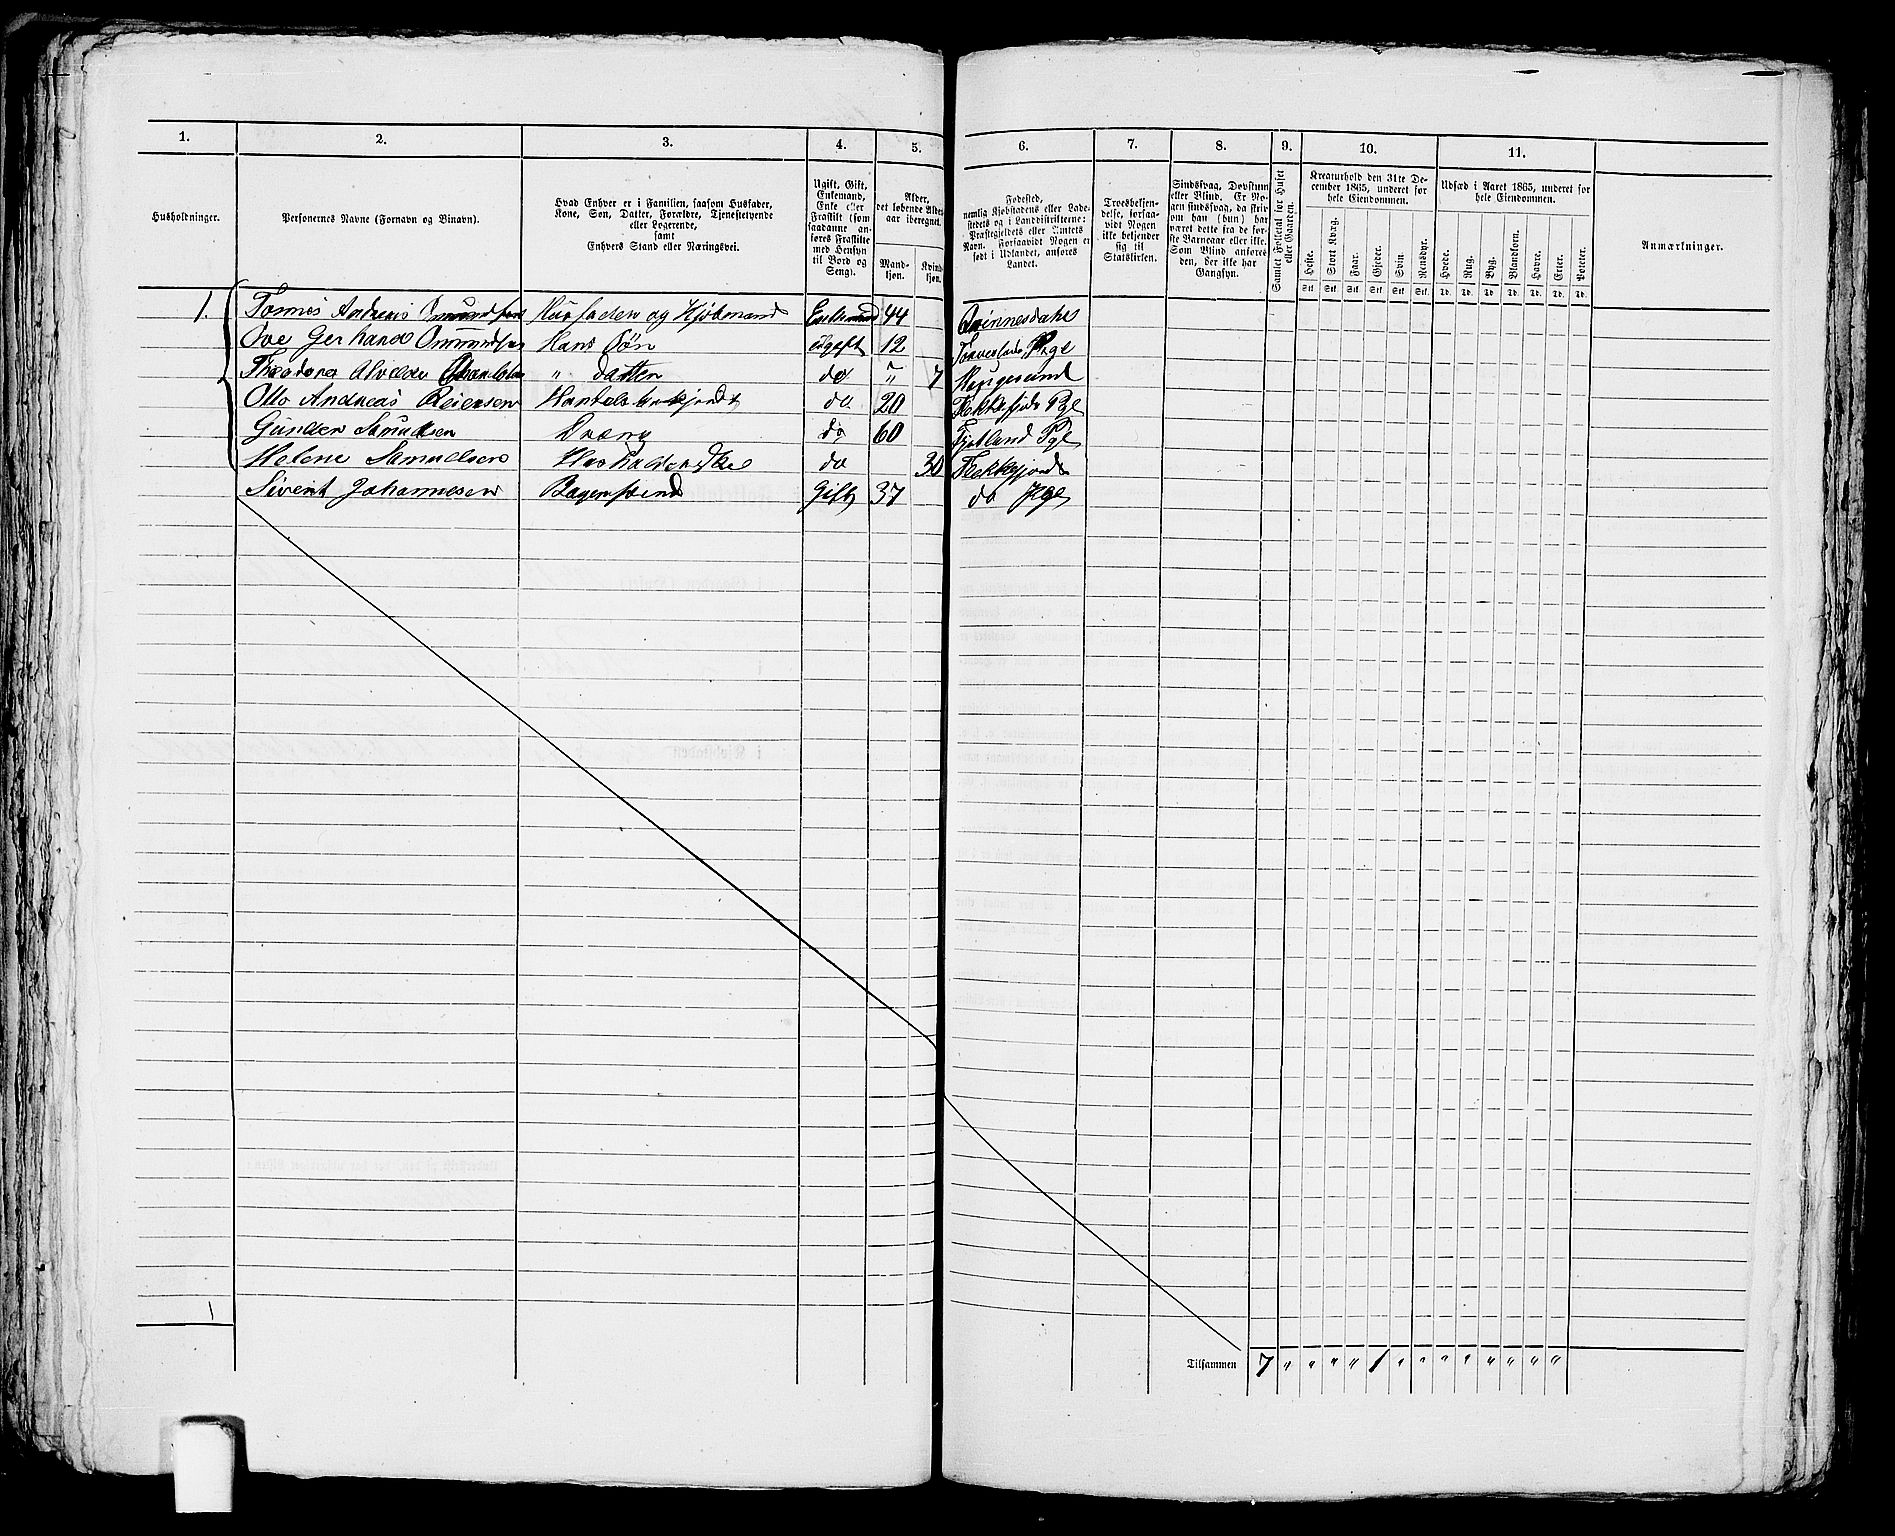 1. 2. 3. 4. 5. 6. 7. 8. 9. 10. 11.
Husholdninger.
Personernes Navne (Fornavn og Binavn).
Hvad Enhver er i Familien, saasom Husfader,
Kone, Søn, Datter, Forældre, Tjenestetyende
eller Logerende,
samt
Enhvers Stand eller Næringsvei.
Ugift, Gift,
Enkemand,
Enke eller
Fraskilt (som
saadanne an-
føres Fraskilte
med Hensyn
til Bord og
Seng).
Alder,
det løbende Alders-
aar iberegnet.
Mand-
kjøn.
Kvind-
kjøn.
Fødested,
nemlig Kjøbstadens eller Lade-
stedets og i Landdistrikterne:
Præstegjeldets eller Amtets
Navn. Forsaavidt Nogen er
født i Udlandet, anføres
Landet.
Troesbekjen-
delse, forsaa-
vidt Nogen
ikke bekjender
sig til
Statskirken.
Sindssvag, Døvstum
eller Blind. Er No-
gen sindssvag, da skriv
om han (hun) har
været dette fra de før-
ste Barneaar eller ikke.
Som Blind anføres
den, der ikke har
Gangsyn.
Samlet Folketal for Huset
eller Gaarden.
Kreaturhold den 31te De-
cember 1865, underet for
hele Eiendommen.
Heste. Stort Kvæg. Faar. Gjeder. Svin. Rensdyr.
Stk. Stk. Stk. Stk. Stk. Stk.
Udsæd i Aaret 1865, underet for
hele Eiendommen.
Hvede. Rug. Byg. Blandkorn. Havre. Erter. Poteter.
Td. Td. Td. Td. Td. Td. Td.
Anmærkninger.
1. Tønnes Andreas Omundsen Husfader og Kjøbmand Enkemand 44 Qvinnesdahl
Ove Gerhard Ommundsen Hans Søn ugift 12 Pgl
Theodora " Datter do " 7
Otto Andreas Reiersen Handelsbetjendt do 20 Flekkefjords Pgl
Gunder Samuelsen Dreng do 60 Fjotland Pgl
Helene Samuelsen Husholderske do 30 Flekkefjord
Sivert Johannesen Bagersvend Gift 37 do Pgl
1
Tilsammen 7 " " " " 1 " " " " " " " "